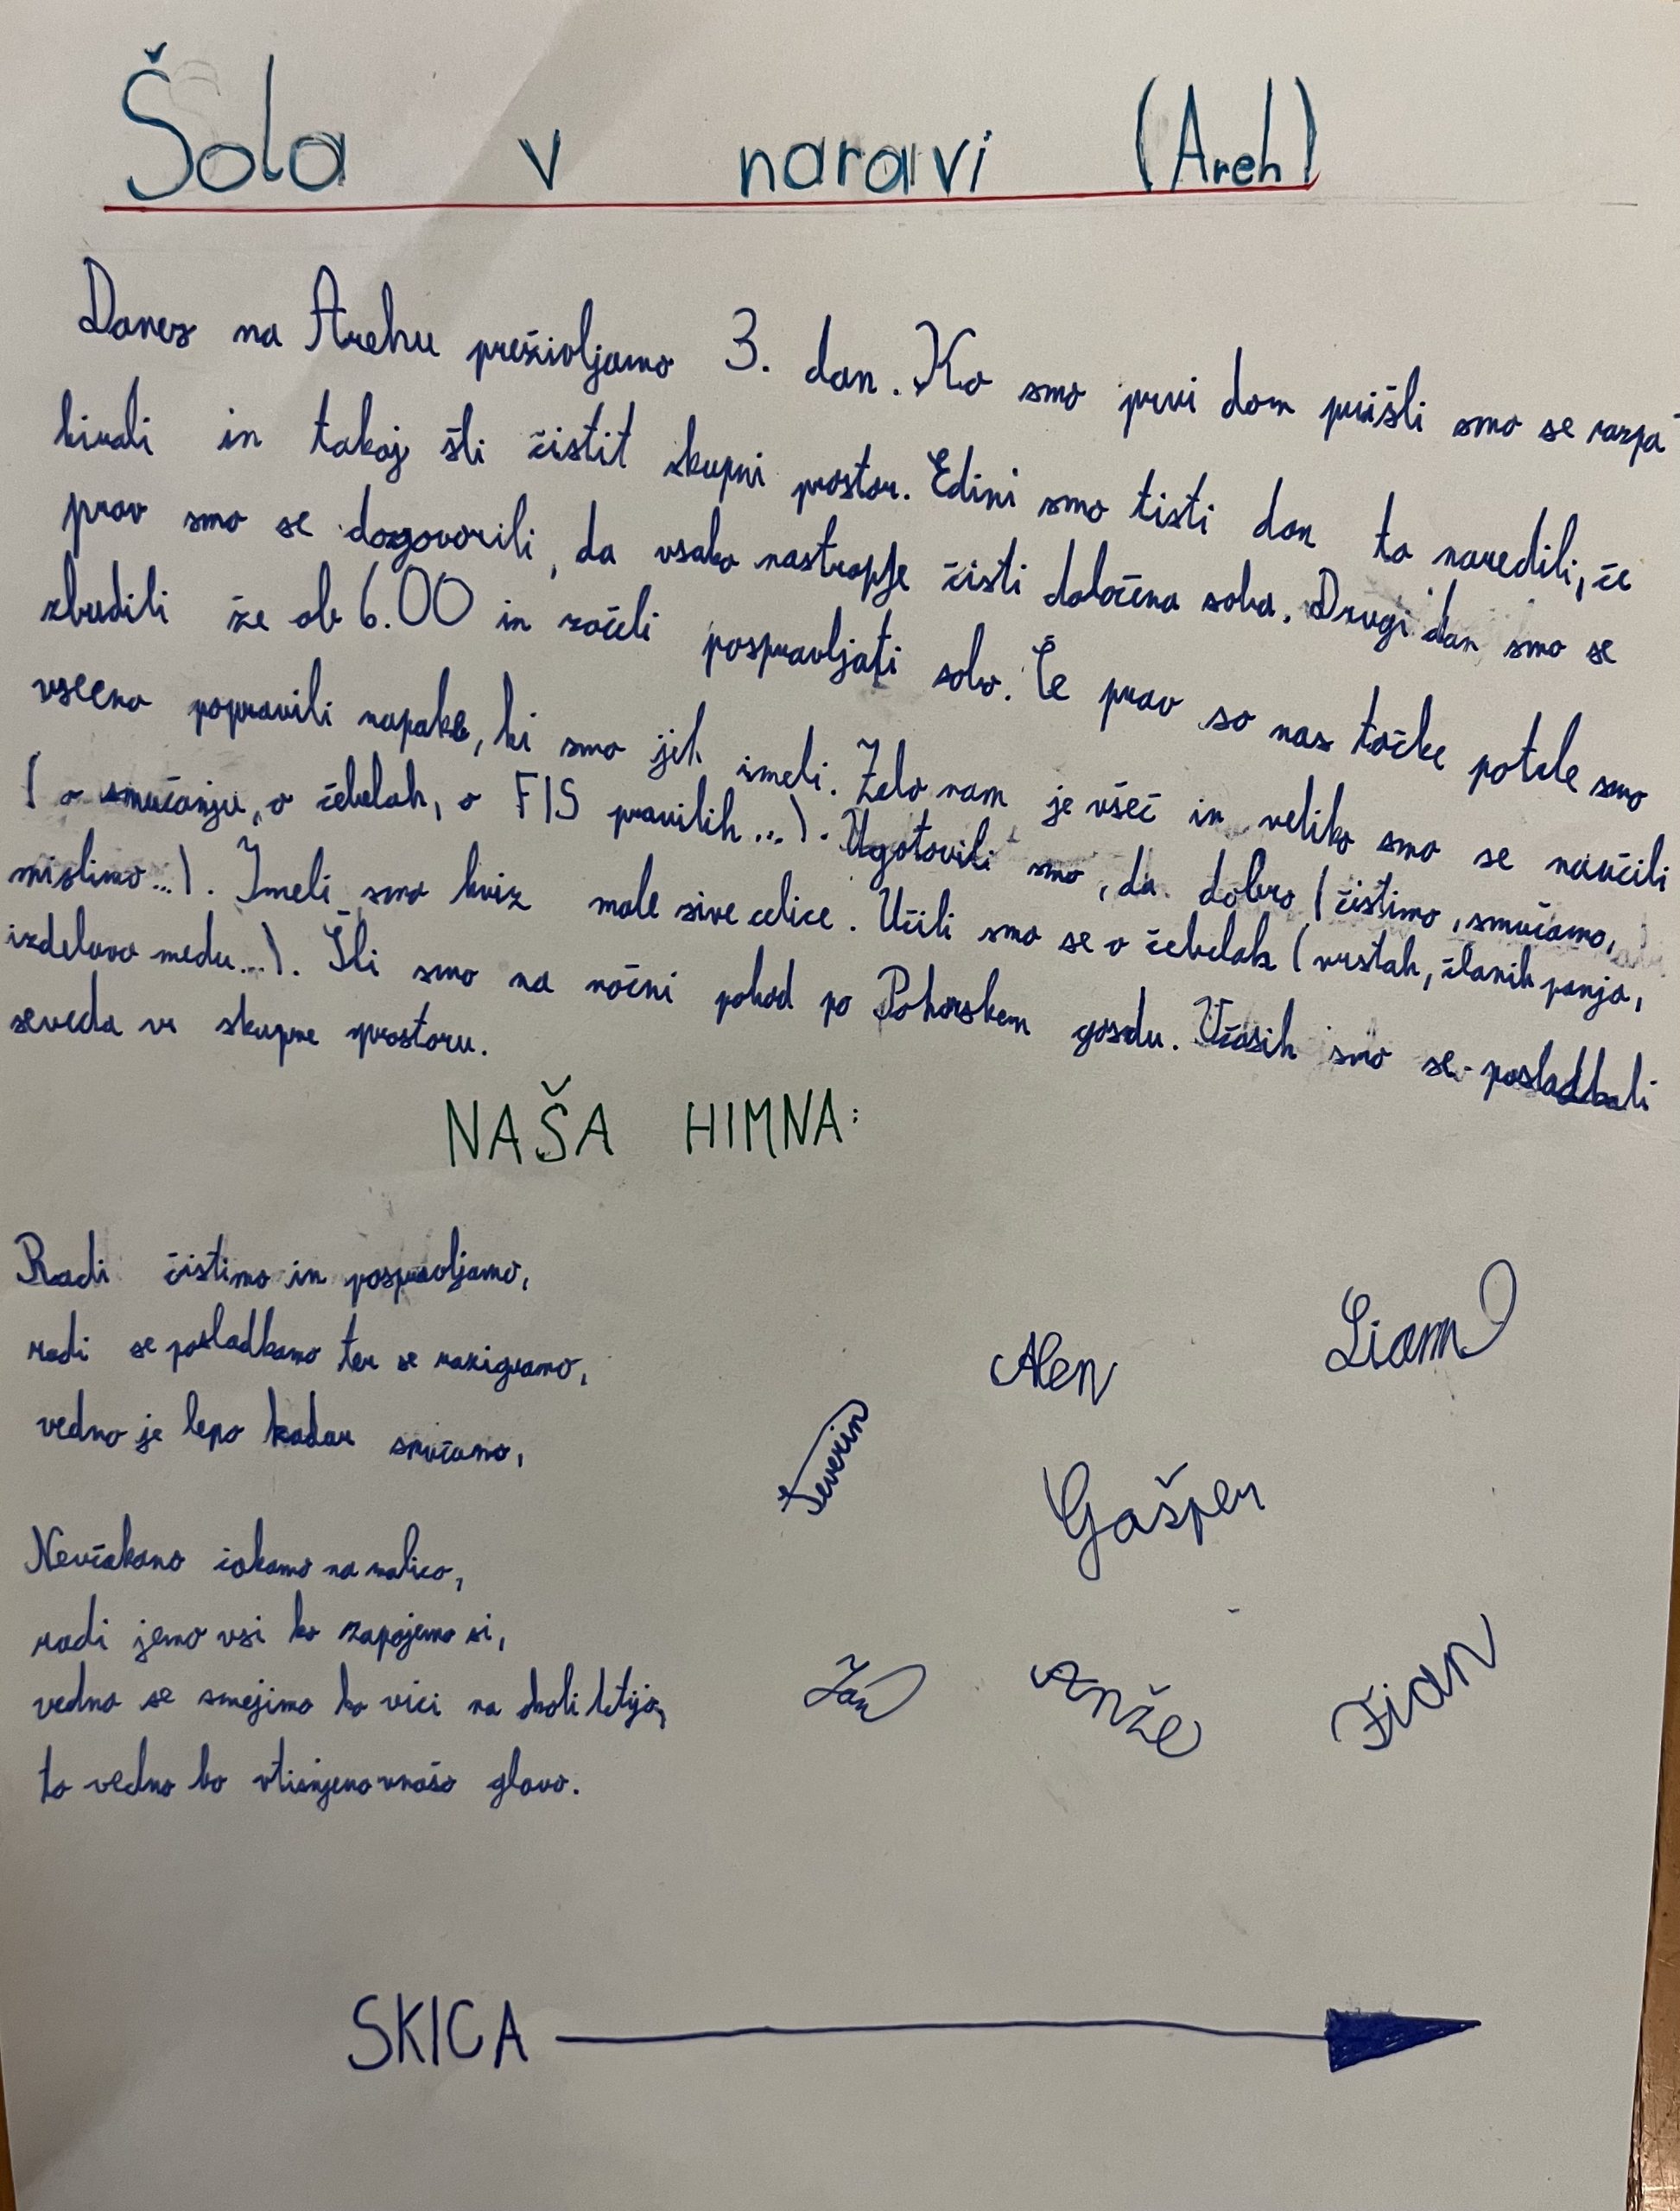 Šola v naravi (Areh)
Danes na Arehu preživljamo 3. dan. Ko smo prvi dan prišli smo se razpa
kirali in takoj šli čistit skupni prostor. Edini smo tisti dan to naredili, če
prav smo se dogovorili, da vsako nastropje čisti določena soba. Drugi dan smo se
zbudili že ob 6.00 in začeli pospravljati sobo. Če prav so nas točke potrle smo
vseeno popravili napake, ki smo jih imeli. Zelo nam je všeč in veliko smo se naučili
(o smučanju, o čebelah, o FIS pravilih...). Ugotovili smo, da dobro (čistimo, smučamo,
mislimo...). Imeli smo kviz male sive celice. Učili smo se o čebelah (vrstah, članih panja,
izdelavo medu...). Šli smo na nočni pohod po Pohorskem gozdu. Včasih smo se posladkali
seveda v skupne prostoru.
NAŠA HIMNA:
Radi čistimo in pospravljamo,
radi se posladkamo ter se razigramo,
vedno je lepo kadar smučamo,
Nevčakano čakamo na malico,
radi jemo vsi ko zapojemo si,
vedno se smejimo ko vici na okoli letijo,
to vedno bo vtisnjeno vnašo glavo.
Alen Liam
Severin
Gašper
Jan Anže Tian
SKICA